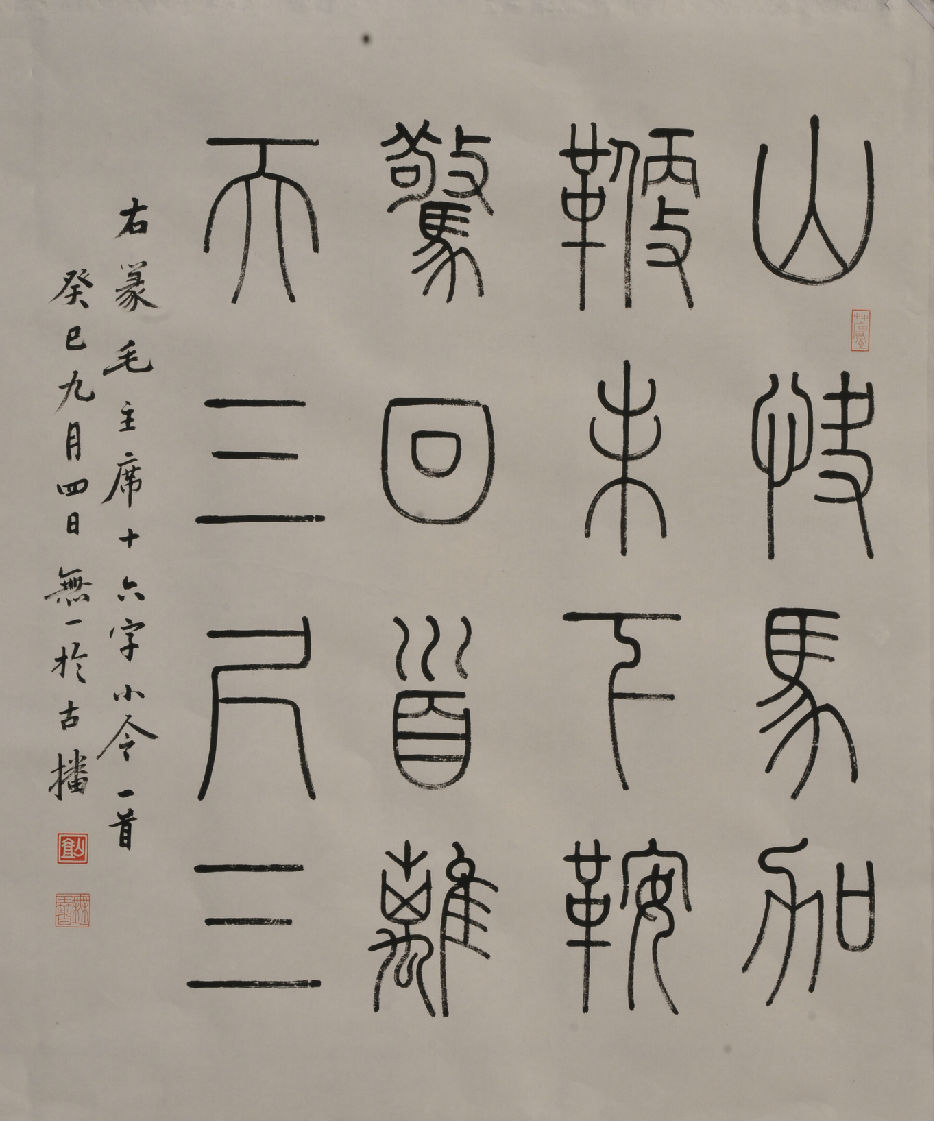 山快馬加
鞭未下鞍
驚回首離
天三尺三
右篆毛主席十六字小令一首
癸巳九月四日無一於古播